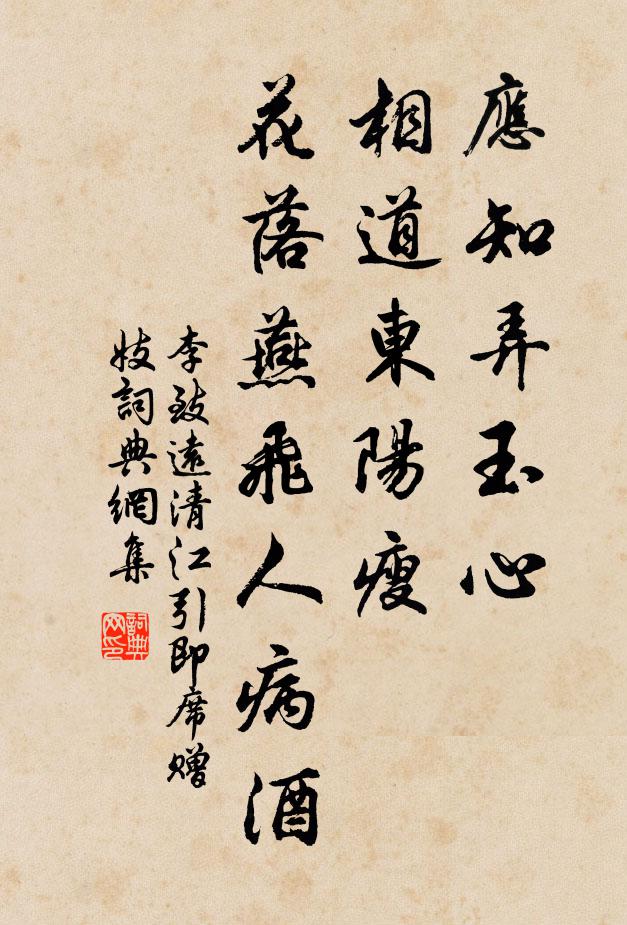 應知弄玉心
相道東陽瘦
花落燕飛人病酒
李致遠清江引即席贈
妓詞典網集
詞典网印